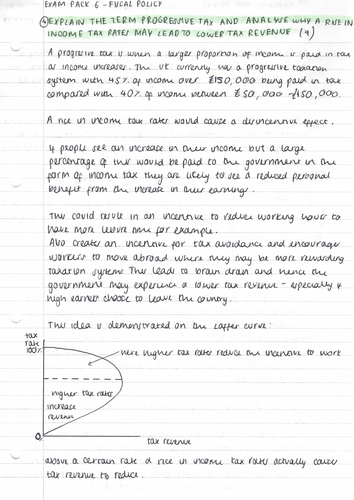 EXAM PACK 6 - FISCAL POLICY
④ EXPLAIN THE TERM PROGRESSIVE TAX AND ANALYSE WHY A RISE IN
INCOME TAX RATES MAY LEAD TO LOWER TAX REVENUE (9)
A progressive tax is when a larger proportion of income is paid in tax
as income increases. The UK currently has a progressive taxation
system with 45% of income over £150,000 being paid in tax
compared with 40% of income between £50,000 - £150,000.
A rice in income tax rates would cause a disincentive effect.
If people see an increase in their income but a large
percentage of this would be paid to the government in the
form of income tax they are likely to see a reduced personal
benefit from the increase in their earnings.
This could result in an incentive to reduce working hours to
have more leisure time for example.
Also creates an incentive for tax avoidance and encourages
workers to move abroad where they may be more rewarding
taxation systems. This leads to brain drain and hence the
government may experience a lower tax revenue - especially if
high earners choose to leave the country.
This idea is demonstrated on the Laffer curve:
tax
rate
100%
here higher tax rates reduce the incentive to work
higher tax rates
increase
revenue
0
tax revenue
above a certain rate a rice in income tax rates actually cause
tax revenue to reduce.